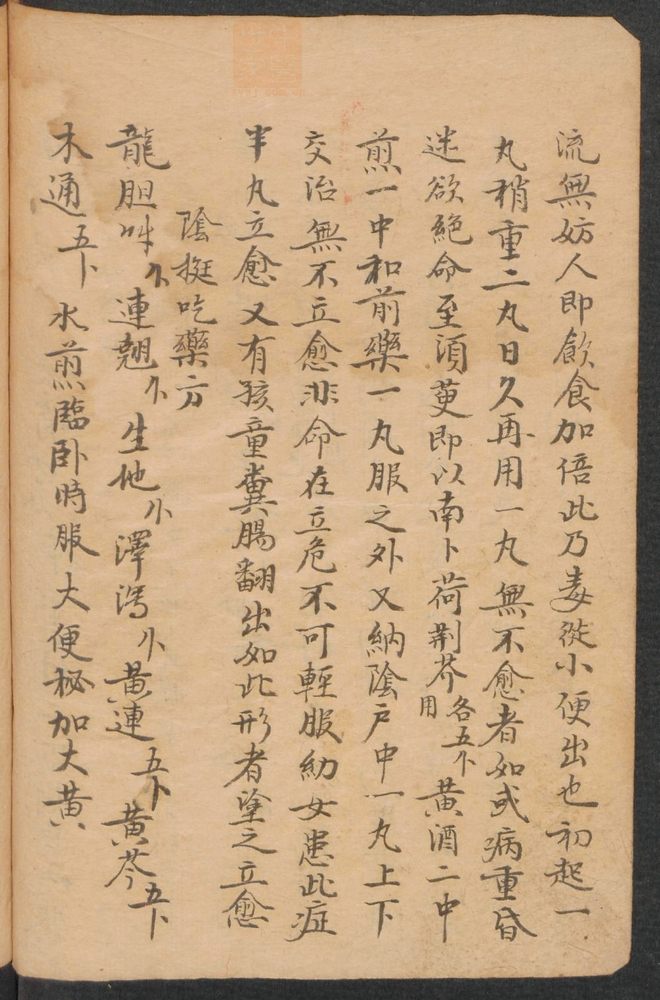 流無妨人即飲食加倍此乃毒從小便出也初起一
丸稍重二丸日久再用一丸無不愈者如或病重昏
迷欲絕命至須萸即以南卜荷荆芥各五卜用黄酒二中
煎一中和前藥一丸服之外又納陰户中一丸上下
交治無不立愈非命在立危不可輕服幼女患此症
半丸立愈又有孩童糞腸翻出如此形者塗之立愈
陰挺吃藥方
龍胆 連翹 生地 澤瀉 黄連五卜 黄芩五卜
木通五卜 水煎臨卧時服大便秘加大黄